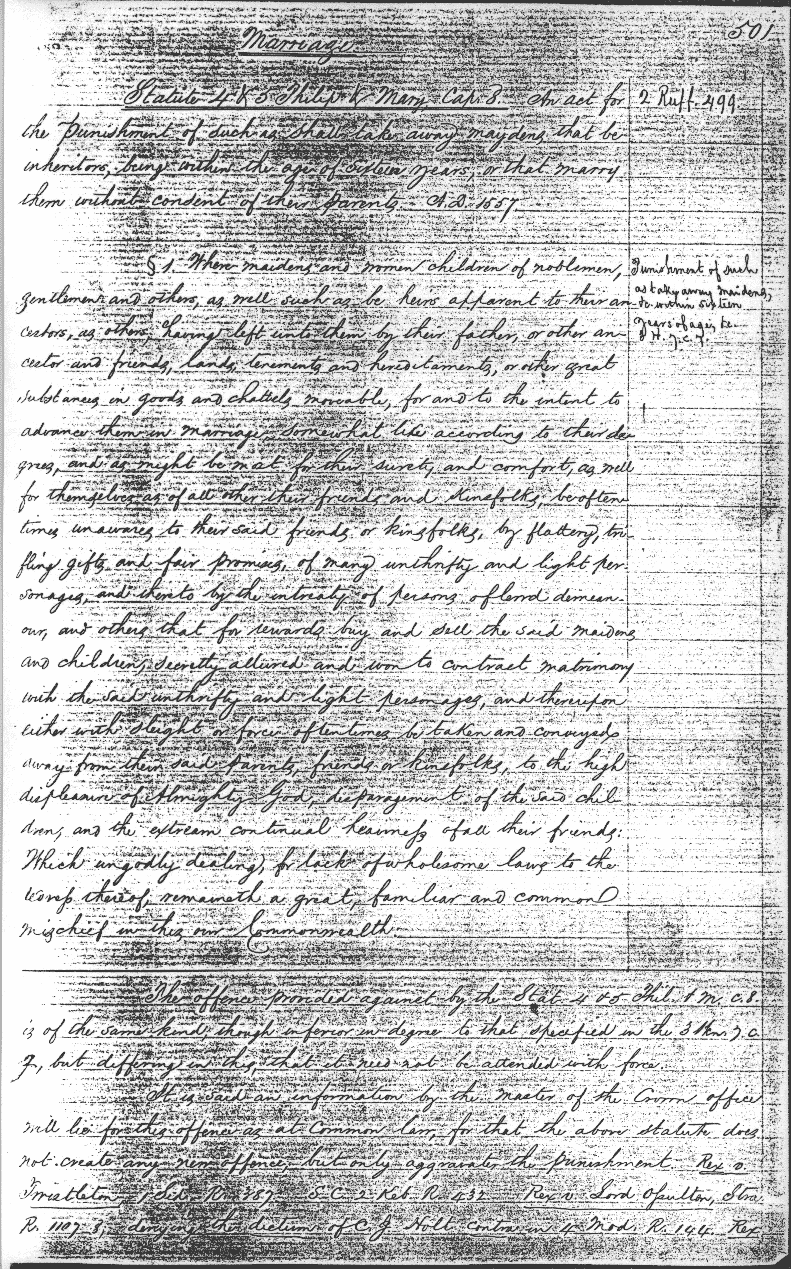 501
Marriage
Statute 4 & 5 Philip & Mary Cap. 8. An act for
the punishment of such as shall take away maydens that be
inheritors, being within the age of sixteen years, or that marry
them without consent of their parents. A.D. 1557
2 Ruff. 499.
§ 1. Where maidens and women children of noblemen,
gentlemen and others, as well such as be heirs apparent to their an-
cestors, as others, having left unto them by their father, or other an-
cestor and friends, lands, tenements and hereditaments, or other great
substances in goods and chattels moveable, for and to the intent to
advance them in marriage, somewhat like according to their de-
grees, and as might be most for their surety and comfort, as well
for themselves as of all other their friends and kinsfolks, be often
times unawares to their said friends or kinsfolks, by flattery, tri-
fling gifts and fair promises, of many unthrifty and light per-
sonages, and thereto by the intreaty of persons of lewd demean-
our, and others that for rewards buy and sell the said maidens
and children, secretly allured and won to contract matrimony
with the said unthrifty and light personages, and thereupon
either with sleight or force oftentimes be taken and conveyed
away from their said parents, friends or kinsfolks, to the high
displeasure of Almighty God, disparagement of the said chil-
dren, and the extream continual heaviness of all their friends:
Which ungodly dealing, for lack of wholesome laws to the
redress thereof, remaineth a great, familiar and common
mischief in this our Commonwealth.
Punishment of such
as take away maidens,
&c. within sixteen
years of age, &c.
3 H. 7. c. 2.
The offence provided against by the Stat. 4 & 5 Phil. & M. c. 8.
is of the same kind, though inferior in degree to that specified in the 3 Hen. 7. c.
2, but differing in this that it need not be attended with force.
It is said an information by the master of the Crown office
will lie for this offence as at Common law, for that the above statute does
not create any new offence, but only aggravates the punishment. Rex v.
Twistleton 1 Sid. R. 387 S. C. 2 Keb. R. 432 Rex v. Lord Ossulton, Stra.
R. 1107-8, denying the dictum of C. J. Holt contra in 4 Mod. R. 144. Rex